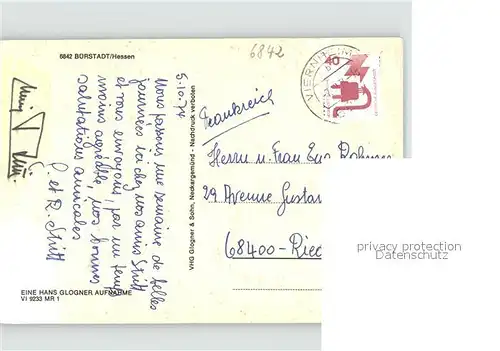 6842 BÜRSTADT/Hessen
6842
5.10.74
Nous passons une semaine de belles
journées ici chez nos amis Stritt
et vous envoyons, par un temps
moins agréable, nos bonnes
salutations amicales
et R. Stritt
EINE HANS GLOGNER AUFNAHME
VI 9233 MR 1
VHG Glogner & Sohn, Neckargemünd - Nachdruck verboten
VIERNHEIM
40
Frankreich
Herrn u. Frau Eug.
29 Avenue Gustav
68400 - Ried
privacy protection
Datenschutz